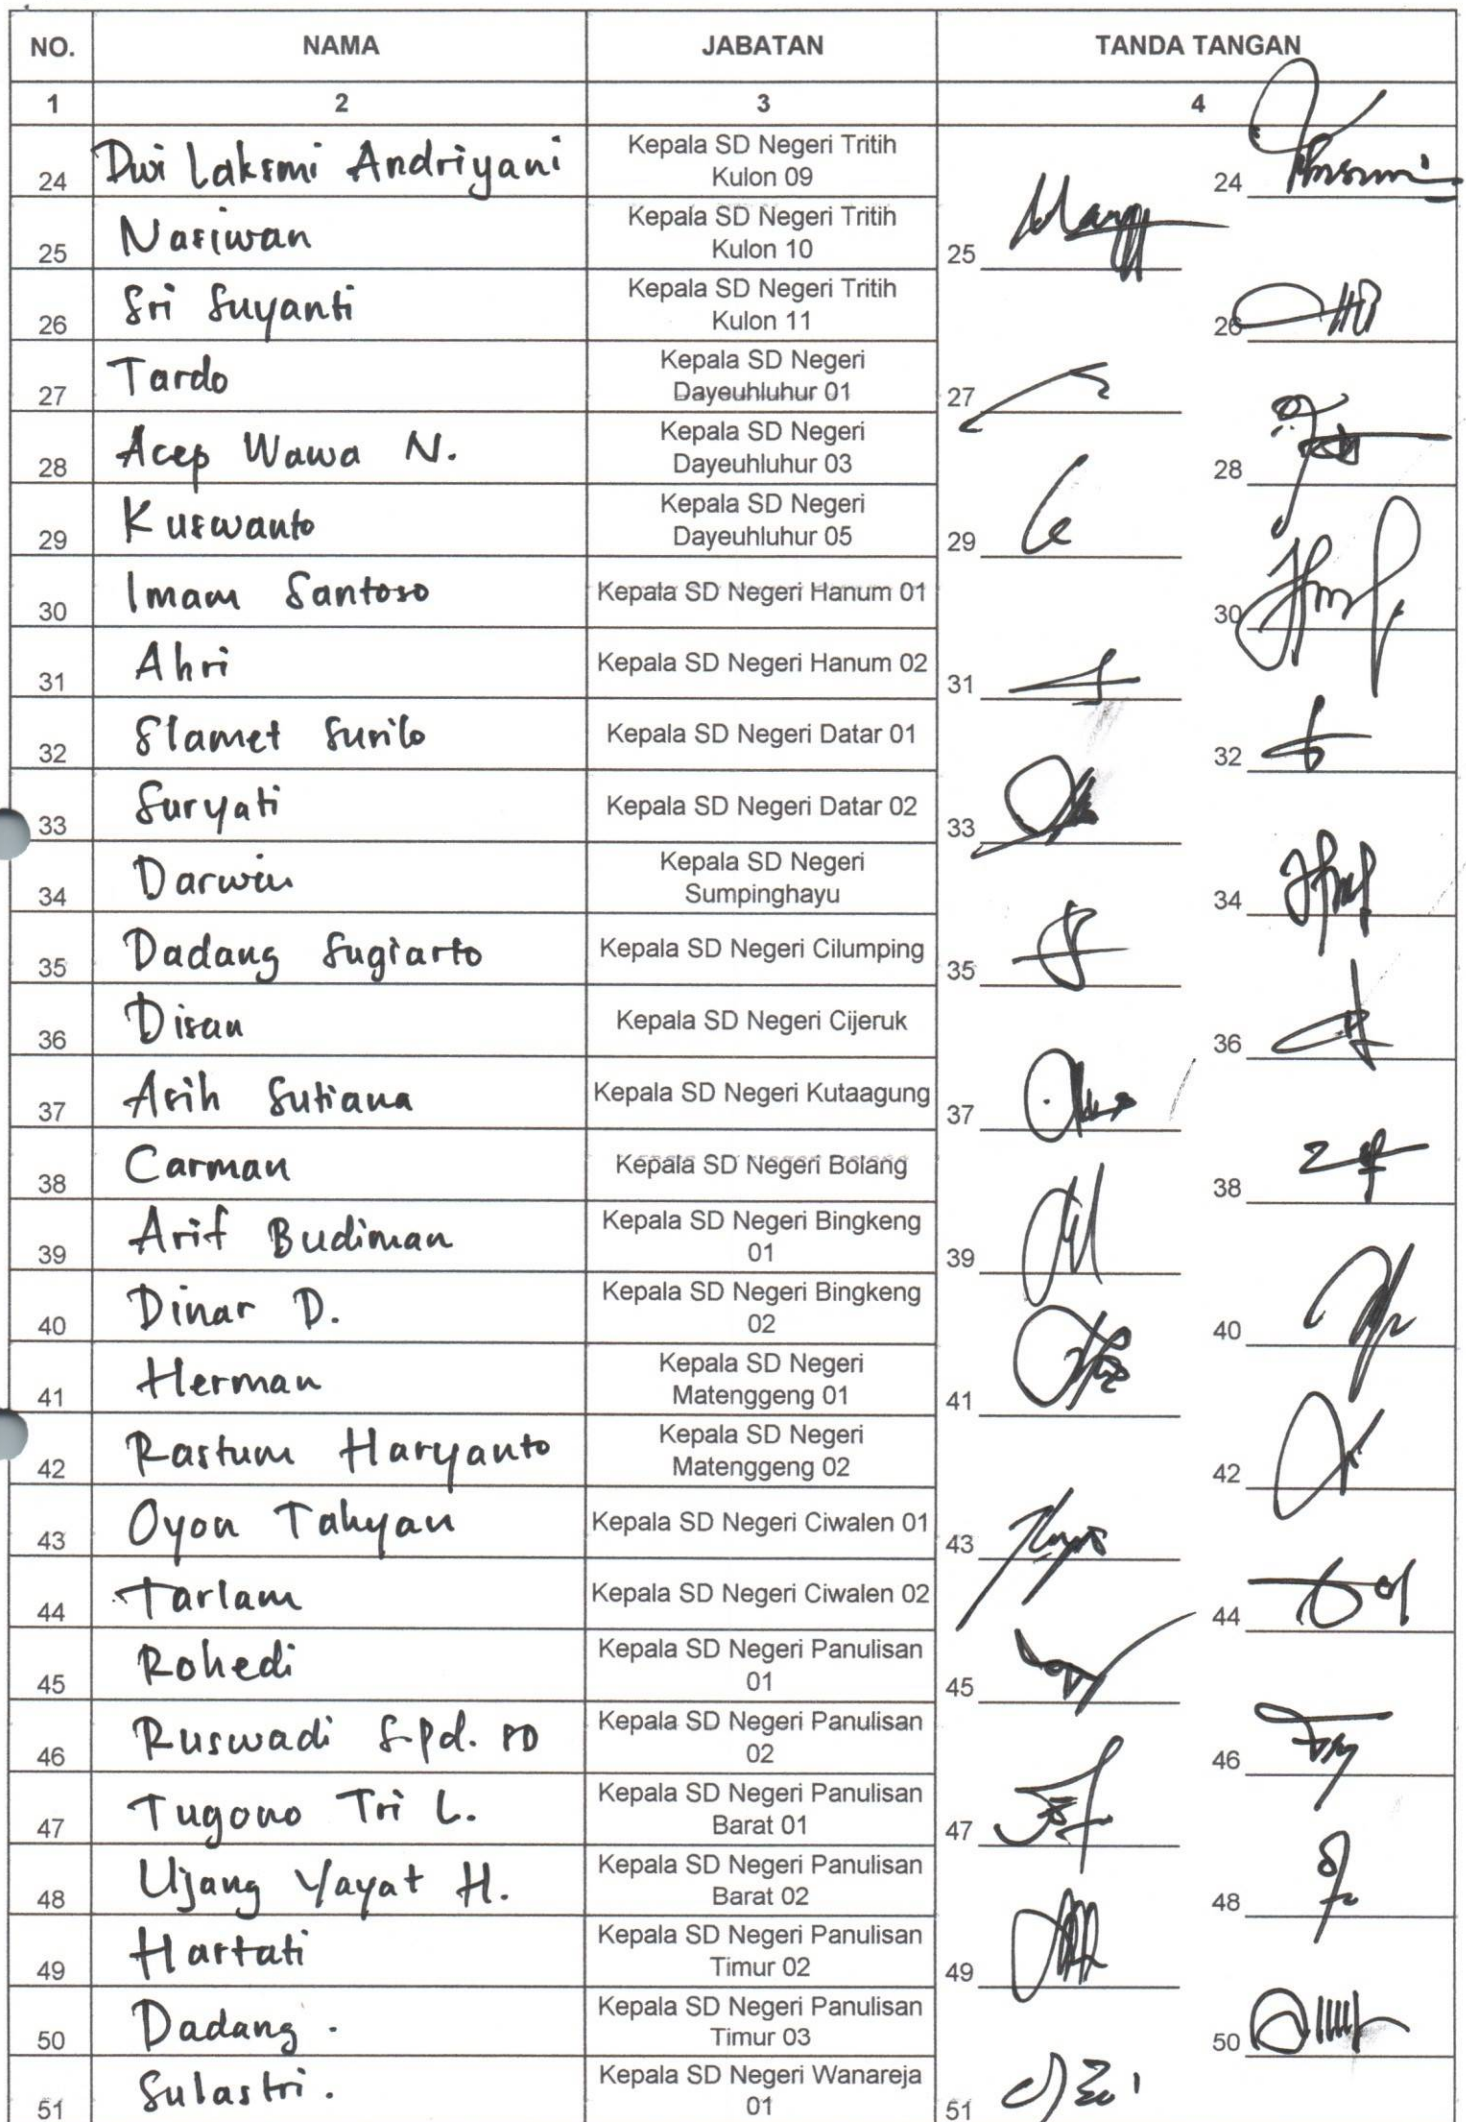 NO. NAMA JABATAN TANDA TANGAN
1 2 3 4
24 Dwi Laksmi Andriyani Kepala SD Negeri Tritih
Kulon 09 24
25 Nasiwan Kepala SD Negeri Tritih
Kulon 10 25
26 Sri Suyanti Kepala SD Negeri Tritih
Kulon 11 26
27 Tardo Kepala SD Negeri
Dayeuhluhur 01 27
28 Acep Wawa N. Kepala SD Negeri
Dayeuhluhur 03 28
29 Kuswanto Kepala SD Negeri
Dayeuhluhur 05 29
30 Imam Santoso Kepala SD Negeri Hanum 01 30
31 Ahri Kepala SD Negeri Hanum 02 31
32 Slamet Susilo Kepala SD Negeri Datar 01 32
33 Suryati Kepala SD Negeri Datar 02 33
34 Darwin Kepala SD Negeri
Sumpinghayu 34
35 Dadang Sugiarto Kepala SD Negeri Cilumping 35
36 Disan Kepala SD Negeri Cijeruk 36
37 Asih Sutiana Kepala SD Negeri Kutaagung 37
38 Carman Kepala SD Negeri Bolang 38
39 Arif Budiman Kepala SD Negeri Bingkeng
01 39
40 Dinar D. Kepala SD Negeri Bingkeng
02 40
41 Herman Kepala SD Negeri
Matenggeng 01 41
42 Rastum Haryanto Kepala SD Negeri
Matenggeng 02 42
43 Oyon Tahyan Kepala SD Negeri Ciwalen 01 43
44 Tarlam Kepala SD Negeri Ciwalen 02 44
45 Rohedi Kepala SD Negeri Panulisan
01 45
46 Ruswadi S.Pd. SD Kepala SD Negeri Panulisan
02 46
47 Tugono Tri L. Kepala SD Negeri Panulisan
Barat 01 47
48 Ujang Yayat H. Kepala SD Negeri Panulisan
Barat 02 48
49 Hartati Kepala SD Negeri Panulisan
Timur 02 49
50 Dadang. Kepala SD Negeri Panulisan
Timur 03 50
51 Sulastri. Kepala SD Negeri Wanareja
01 51